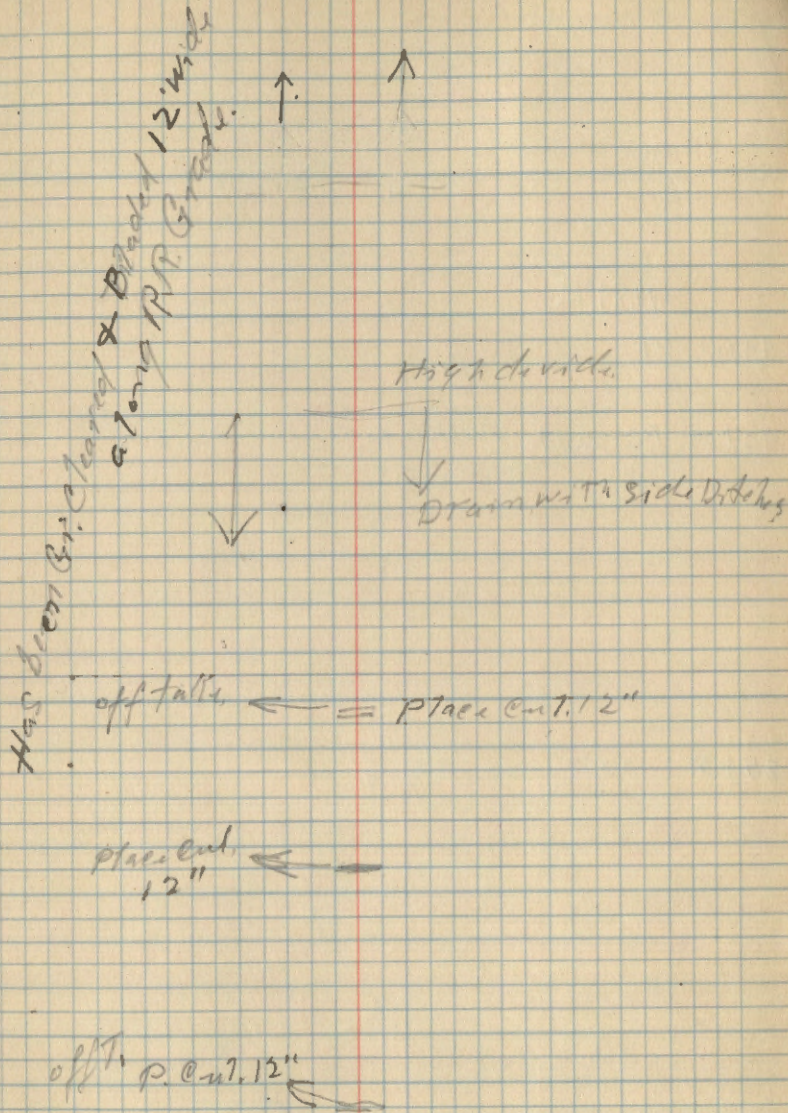 Has been Gr. Cleared & Bladed 12' wide
along RR. Grade.
High devide.
Drain with side Ditches
off take
Place Cul. 12"
Place Cul.
12"
off T. P. Cul. 12"